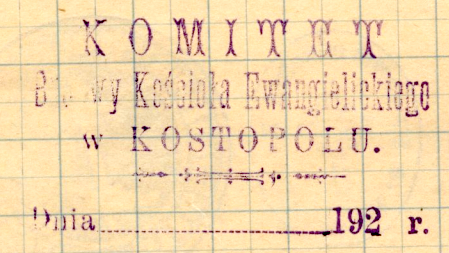 KOMITET
Budowy Kościoła Ewangielickiego
w KOSTOPOLU.
Dnia 192 r.